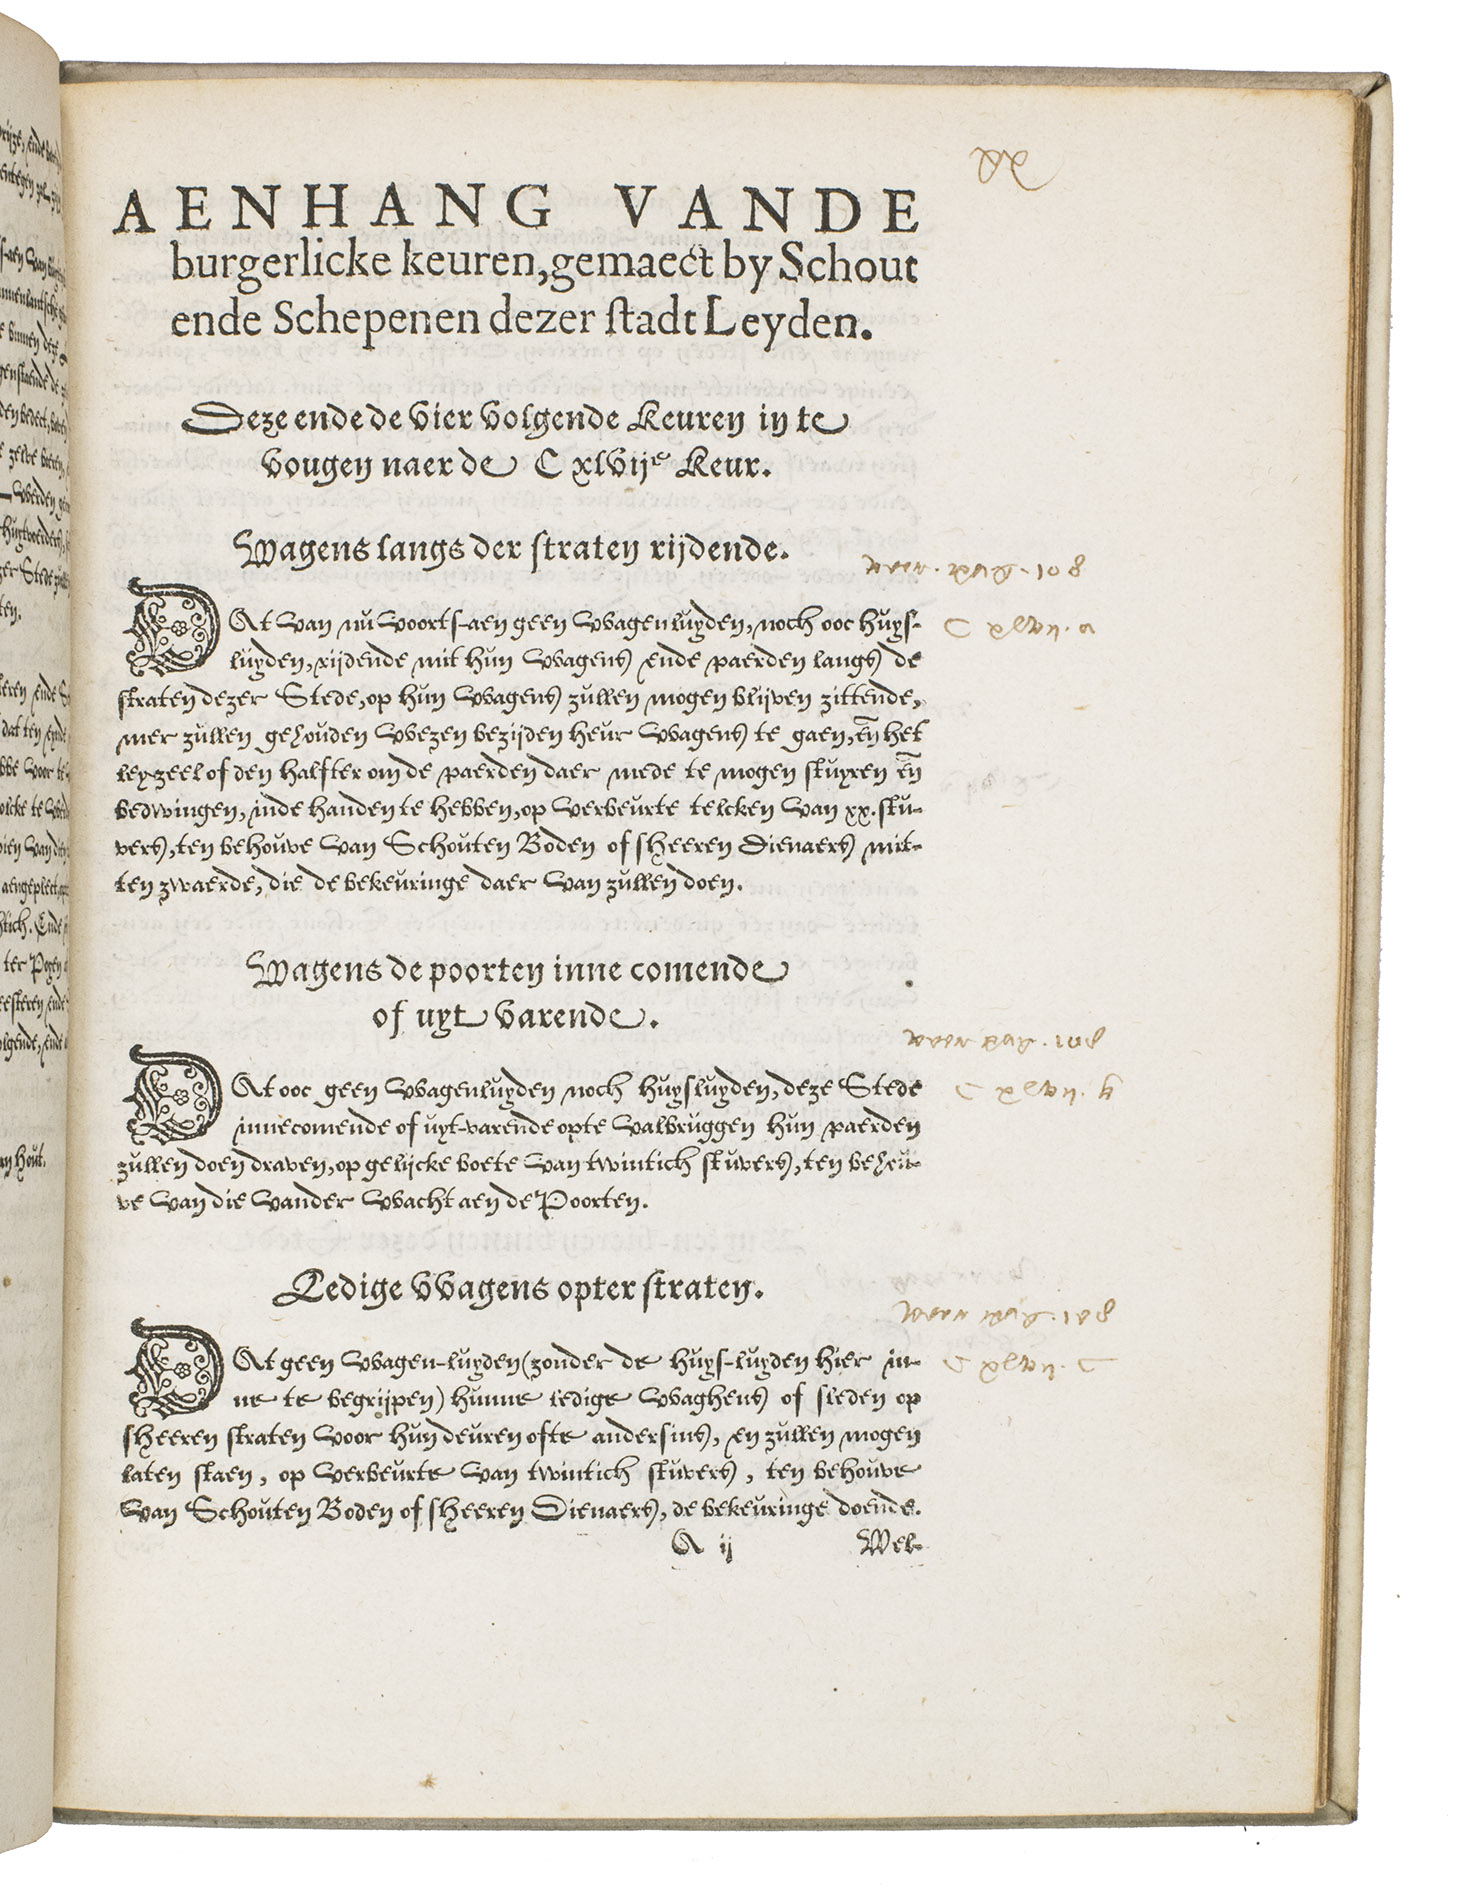 AENHANG VANDE
burgerlicke keuren, gemaect by Schout
ende Schepenen dezer stadt Leyden.
Deze ende de vier volgende Keuren in te
vougen naer de Cxlvije Keur.
Wagens langs der straten rijdende.
DAt van nu voorts-aen geen vvagenluyden, noch ooc huys-
luyden, rijdende mit hun vvagens ende paerden langs de
straten dezer Stede, op hun vvagens zullen mogen blijven zittende,
mer zullen gehouden vvezen bezijden heur vvagens te gaen, eñ het
ley-zeel of den halfter om de paerden daer mede te mogen stuyren eñ
bedwingen, inde handen te hebben, op verbeurte telcken van xx. stu-
vers, ten behouve van Schouten Boden of sheeren Dienaers mit-
ten zwaerde, die de bekeuringe daer van zullen doen.
Wagens de poorten inne comende
of uyt varende.
DAt ooc geen vvagenluyden noch huysluyden, deze Stede
innecomende of uyt-varende opte valbruggen hun paerden
zullen doen draven, op gelijcke boete van twintich stuvers, ten behou-
ve van die vander vvacht aen de Poorten.
Ledige vvagens opter straten.
DAt geen vvagen-luyden (zonder de huys-luyden hier in-
ne te begrijpen) hunne ledige vvaghens of sleden op
sheeren straten voor hun deuren ofte andersins, en zullen mogen
laten staen, op verbeurte van twintich stuvers, ten behouve
van Schouten Boden of sheeren Dienaers, de bekeuringe doende.
A ij Wel-
pag. 108
C xlvii. a
pag. 108
C xlvii. b
pag. 108
C xlvii. C